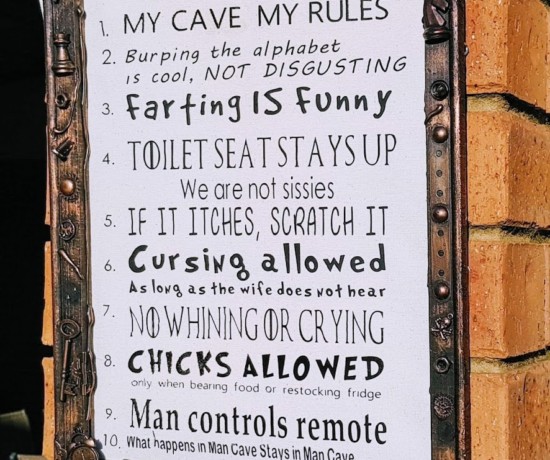 1. MY CAVE MY RULES
2. Burping the alphabet
is cool, NOT DISGUSTING
3. Farting IS Funny
4. TOILET SEAT STAYS UP
We are not sissies
5. IF IT ITCHES, SCRATCH IT
6. Cursing allowed
As long as the wife does not hear
7. NO WHINING OR CRYING
8. CHICKS ALLOWED
only when bearing food or restocking fridge
9. Man controls remote
10. What happens in Man Cave Stays in Man Cave